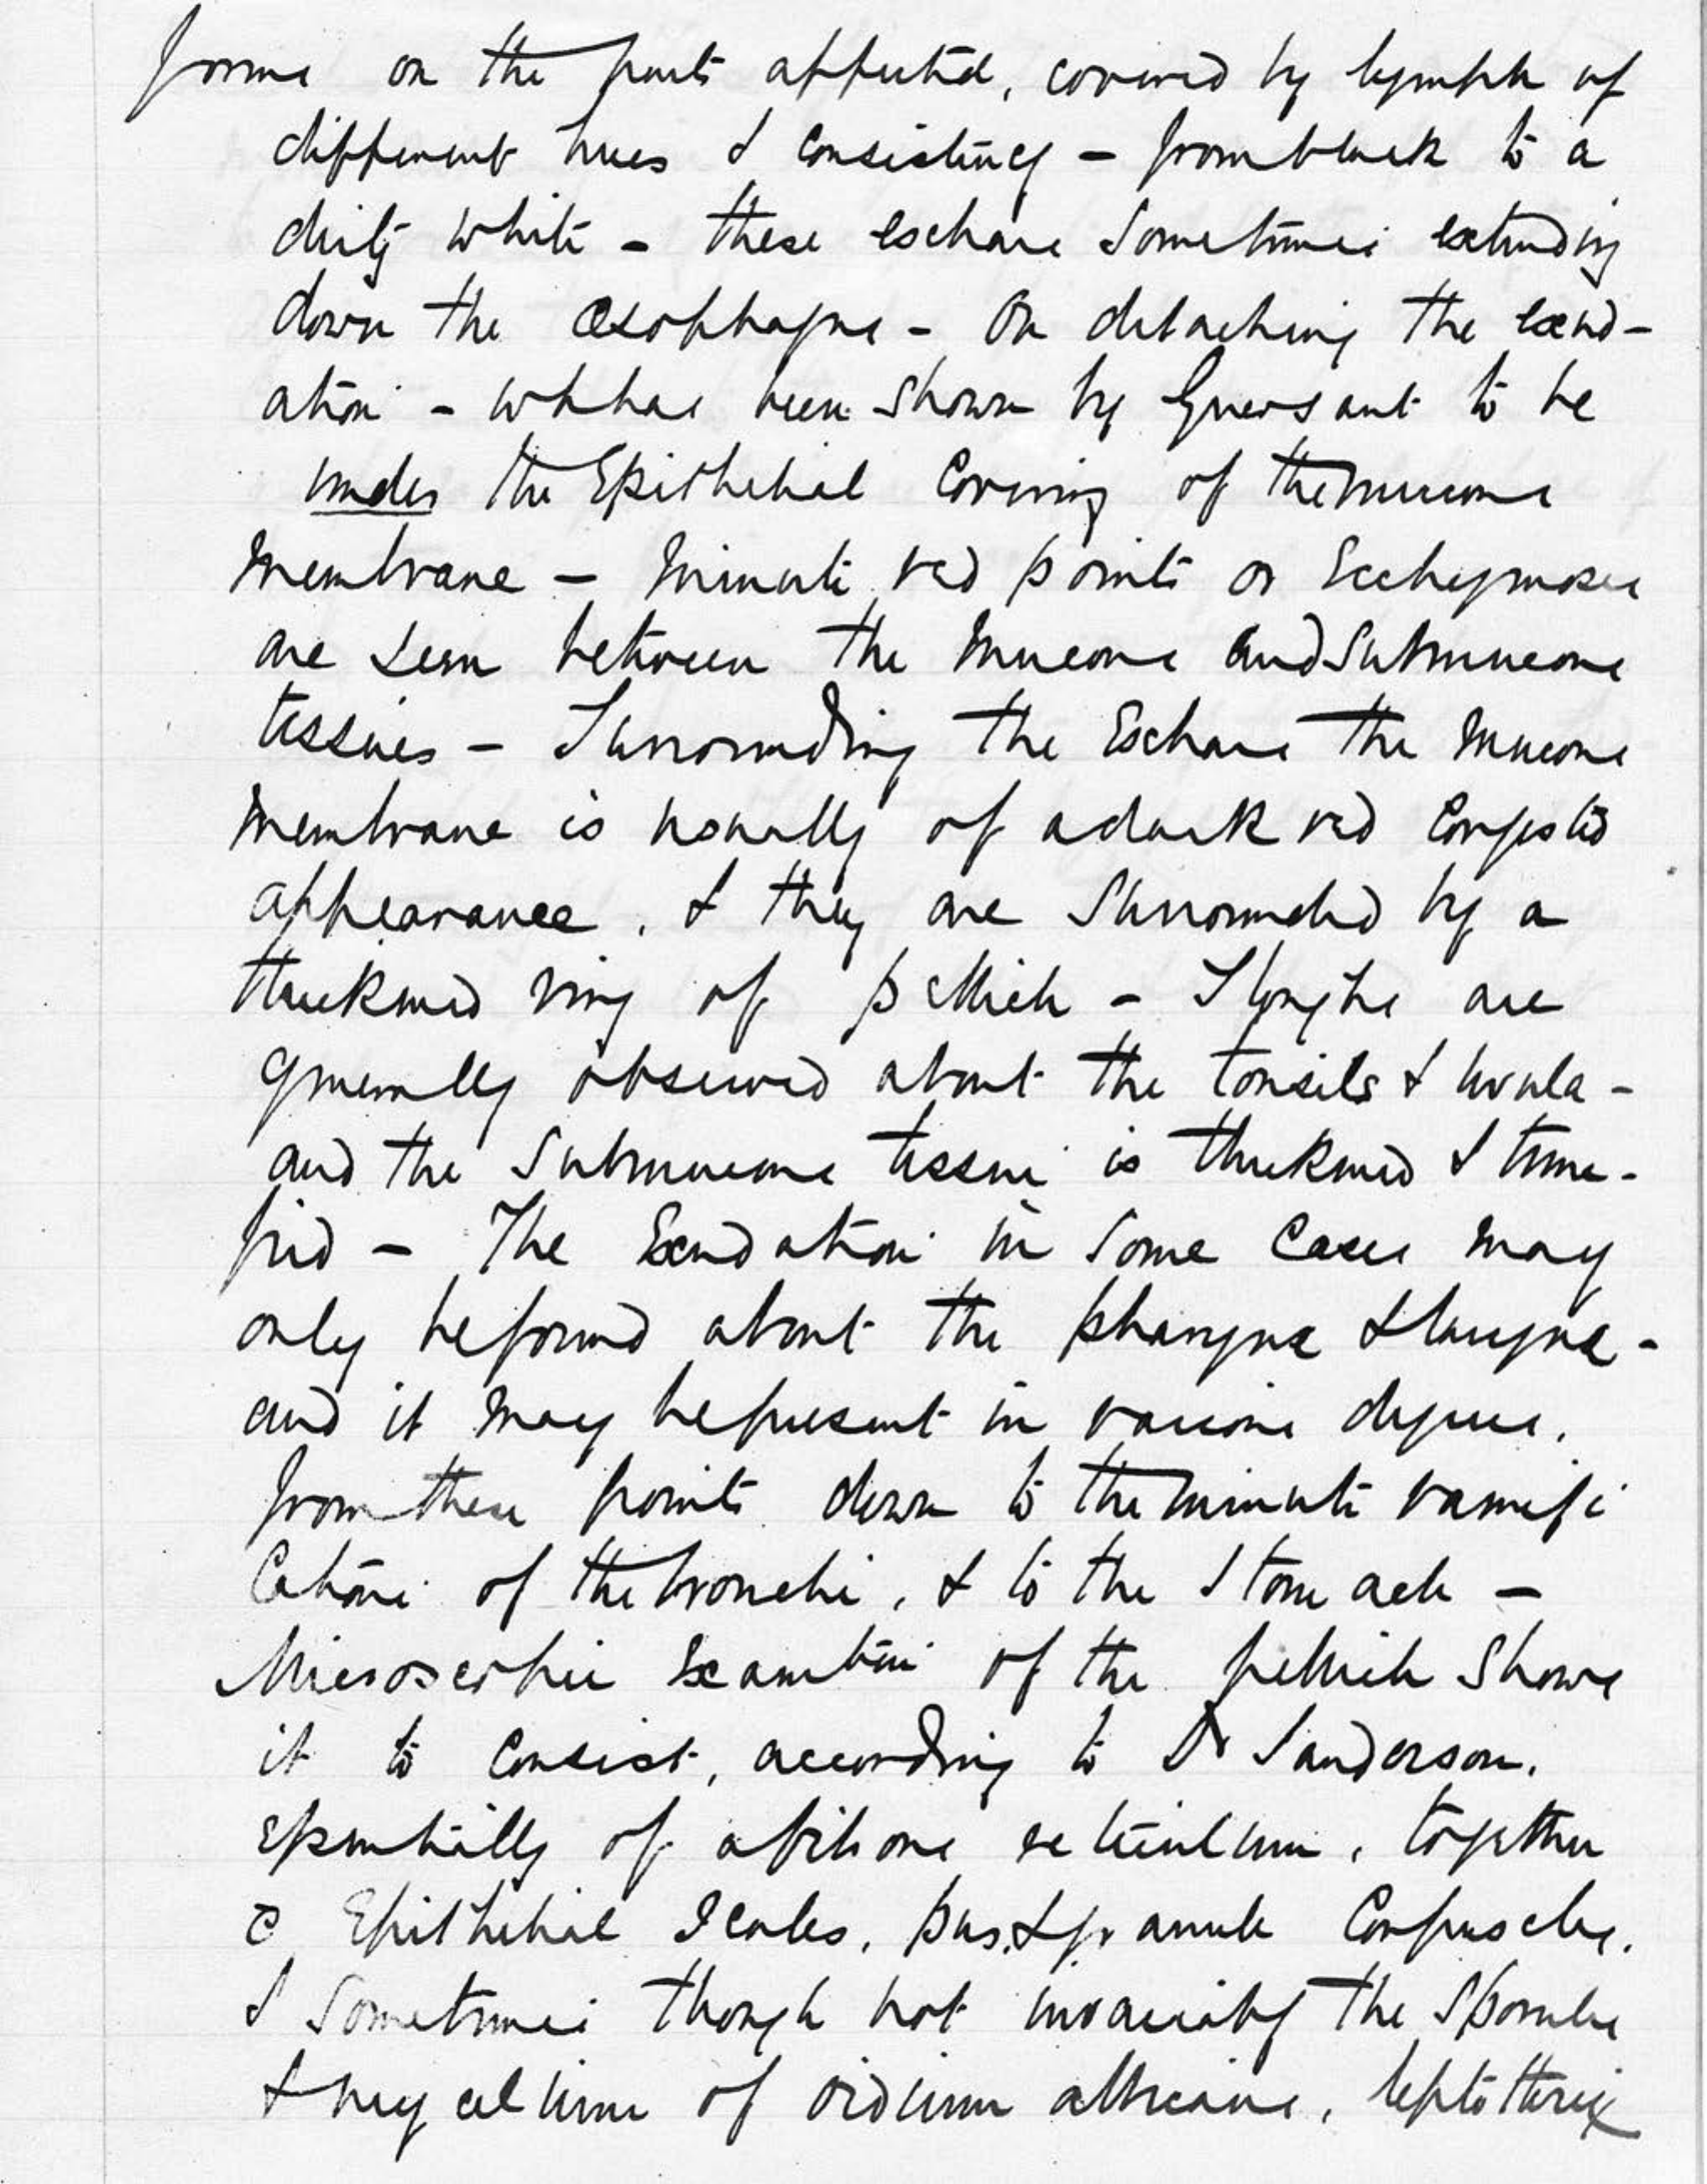 forms on the parts affected, covered by lymph of
different hues & consistency - from black to a
dirty white - these eschars sometimes extending
down the Œsophagus - On detaching the exud-
ation - wh has been shown by Guersant to be
under the Epithelial Covering of the mucous
Membrane - Minute red points or Ecchymoses
are seen between the Mucous and Submucous
tissues - Surrounding the Eschars the Mucous
Membrane is usually of a dark red Congested
appearance, & they are Surrounded by a
thickened ring of pellicle - Sloughs are
generally observed about the tonsils & uvula -
and the Submucous tissue is thickened & tume-
fied - The Exudation in Some Cases may
only be found about the pharynx & larynx -
and it may be present in various degrees,
from these points down to the minute ramifi
cations of the bronchi, & to the Stomach -
Microscopic Examtion of the pellicle Shows
it to Consist, according to Dr Sanderson,
essentially of a fibrous reticulum, together
c̄ Epithelial Scales, pus, & granule Corpuscles,
& Sometimes though not invariably the Sporules
& mycelium of oidium albicans, leptothrix